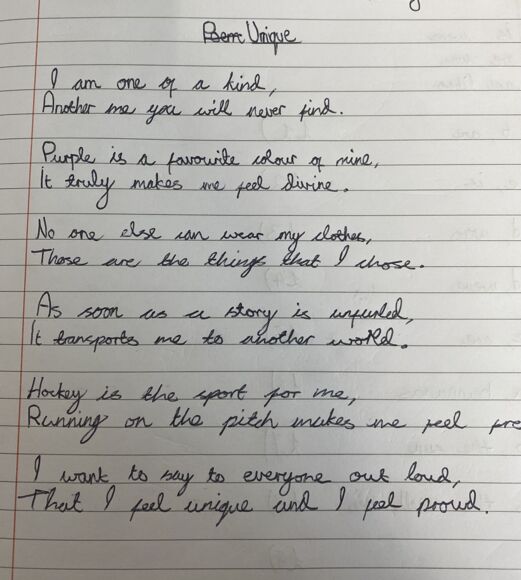 Unique
I am one of a kind,
Another me you will never find.
Purple is a favourite colour of mine,
It truly makes me feel divine.
No one else can wear my clothes,
Those are the things that I chose.
As soon as a story is unfurled,
It transports me to another world.
Hockey is the sport for me,
Running on the pitch makes me feel fre
I want to say to everyone out loud,
That I feel unique and I feel proud.